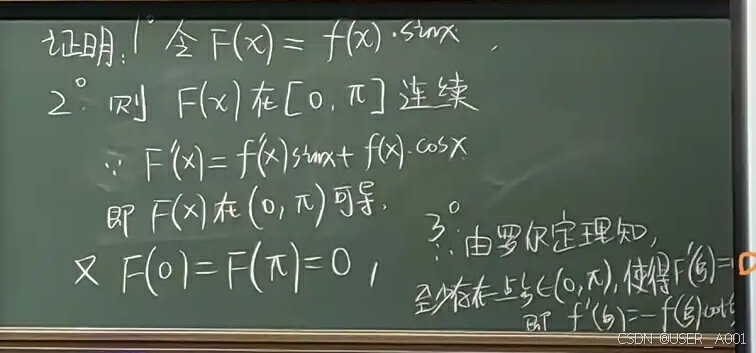 证明: 1° 令 F(x) = f(x)·sinx,
2° 则 F(x) 在 [0, π] 连续
∵ F'(x) = f'(x)sinx + f(x)·cosx
即 F(x) 在 (0, π) 可导,
又 F(0) = F(π) = 0,
3°
∴ 由罗尔定理知,
至少存在一点ξ∈(0, π), 使得F'(ξ) = 0
即 f'(ξ) = -f(ξ)cotξ
CSDN @USER_A001